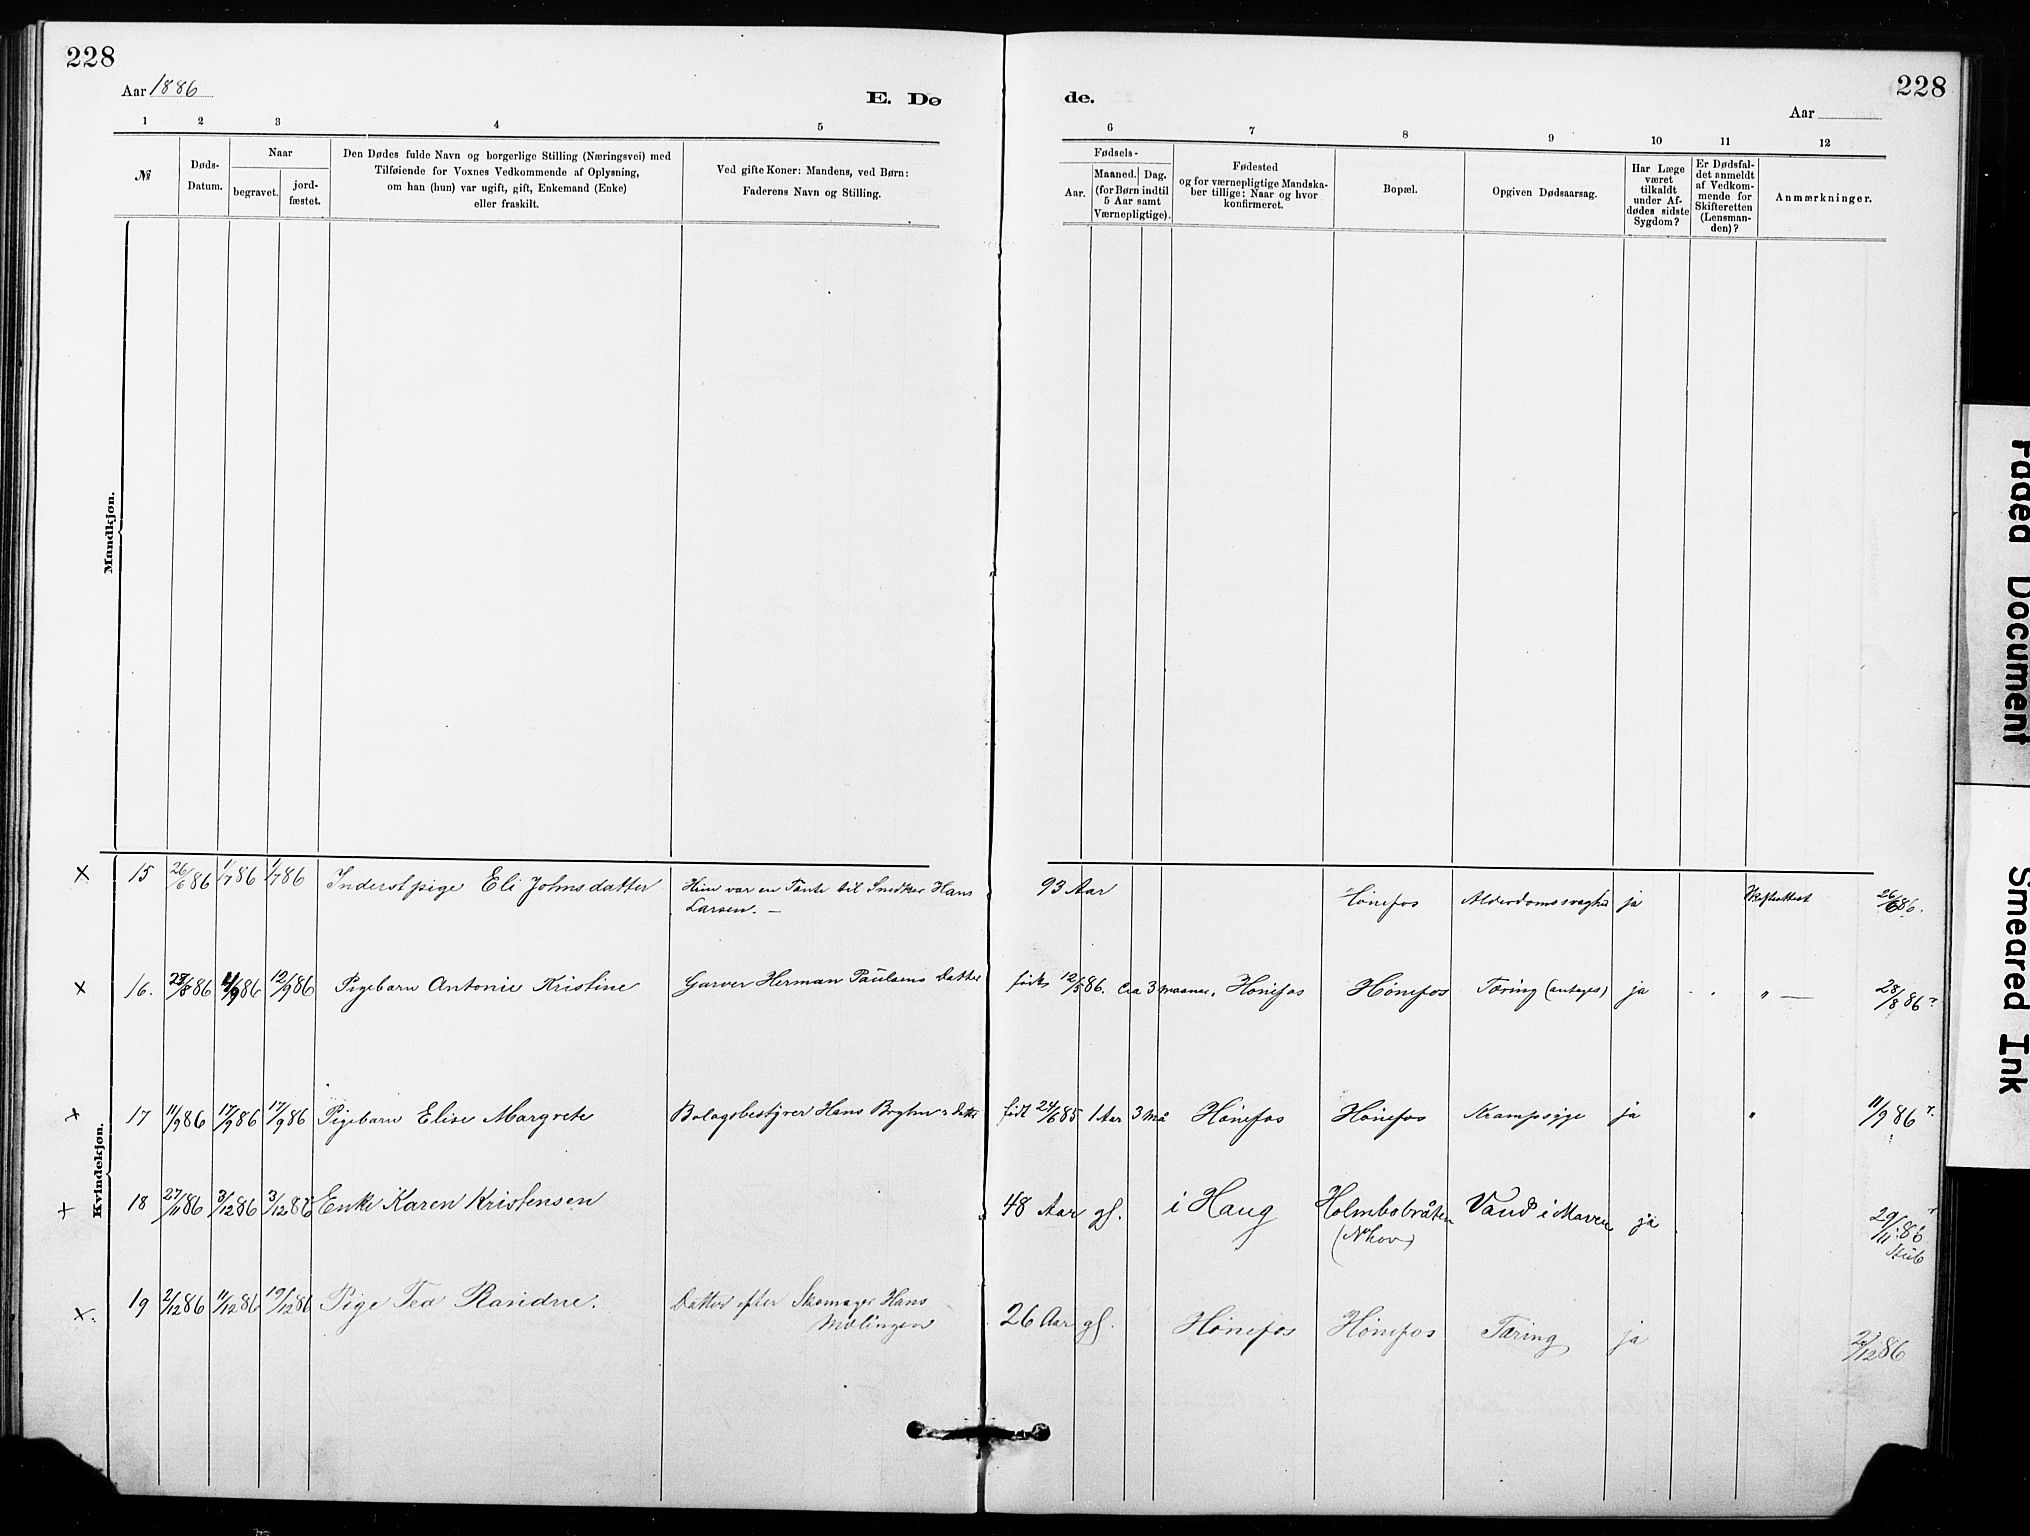 228
228
Aar 1886
E. Dø
de.
Aar
1 2 3 4 5
6 7 8 9 10 11 12
№
Døds-
Datum.
Naar
begravet.
jord-
fæstet.
Den Dødes fulde Navn og borgerlige Stilling (Næringsvei) med
Tilføiende for Voxnes Vedkommende af Oplysning,
om han (hun) var ugift, gift, Enkemand (Enke)
eller fraskilt.
Ved gifte Koner: Mandens, ved Børn:
Faderens Navn og Stilling.
Fødsels-
Aar.
Maaned. Dag.
(for Børn indtil
5 Aar samt
Værnepligtige).
Fødested
og for værnepligtige Mandska-
ber tillige: Naar og hvor
konfirmeret.
Bopæl.
Opgiven Dødsaarsag.
Har Læge
været
tilkaldt
under Af-
dødes sidste
Sygdom?
Er Dødsfal-
det anmeldt
af Vedkom-
mende for
Skifteretten
(Lensman-
den)?
Anmærkninger.
Mandkjøn.
Kvindekjøn.
× 15 26/6 86 1/7 86 1/7 86 Inderstpige Eli Johnsdatter Hun var en Tante til Snedker Hans 93 Aar Hønefos Alderdomssvaghed ja 26/6 86.
Larsen. —
× 16. 28/8 86 4/9 86 12/9 86 Pigebarn Antonie Kristine Garver Herman Paulsens Datter født 12/5 86. Ca 3 maaner. Hønefos Hønefos Tæring (antages) ja " — 28/8 86
× 17 11/9 86 17/9 86 17/9 86 Pigebarn Elise Margrete Bolagsbestyrer Hans Datter født 24/6 85 1 Aar 3 Må Hønefos Hønefos Krampsyge ja " 11/9 86
× 18 27/11 86 3/12 86 3/12 86 Enke Karen Kristensen 48 Aar gl. i Haug Holmbobråten Vand i Maven ja 29/11 86
(Nhov)
×. 19 2/12 86 11/12 86 19/12 86 Pige Tea Randine. Datter efter Skomager Hans 26 Aar gl. Hønefos Hønefos Tæring ja 2/12 86
Mælingen
Faded Document
Smeared Ink